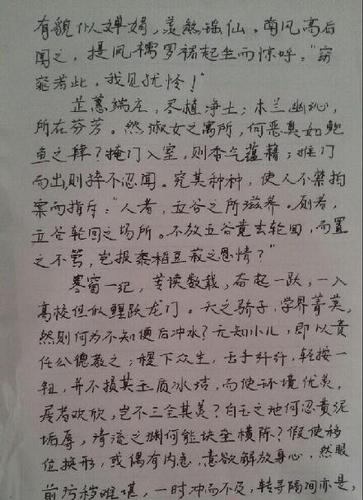 有貌似婵娟，羡煞瑶仙。南风高后
闻之，提凤襦罗裙起坐而惊呼："窈
窕若此，我见犹怜！"
芷蕙端庄，琴植净土；木兰幽沁，
所在芬芳。然淑女之寓所，何恶臭如鲍
鱼之肆？掩门入室，则香气蕴藉；推门
而出则猝不忍闻。究其种种，使人不禁拍
案而指斥："人者，五谷之所滋养。厕者，
五谷轮回之场所。不放五谷竟去轮回，而置
之不管，岂报黍稻豆菽之恩情？"
寒窗一纪，苦读数载，奋起一跃，一入
高校但似鲤跃龙门。天之骄子，学界菁英，
然则何为不知便后冲水？无知小儿，即以责
任公德教之；棍下众生，舌手纤纤，轻按一
钮，并不损其玉质冰洁，而使环境优美，
居者欢欣，岂不三全其美？白玉之地何忍黄泥
垢辱，清流之渊何能块垒横陈？假使移
位换形，或偶有内急，意欲解放身心，然眼
前污秽难堪，一时冲而不及，转寻隔间亦是